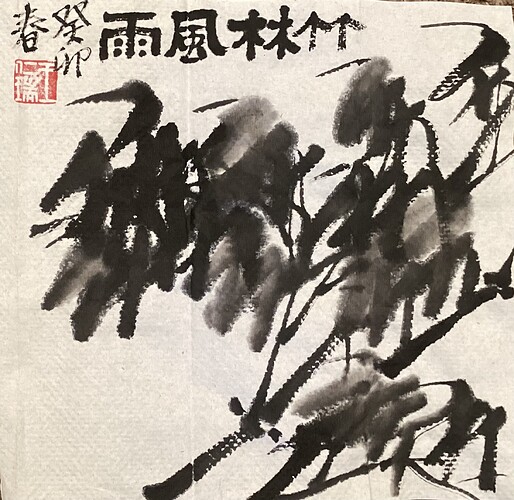 竹林風雨
癸卯
春